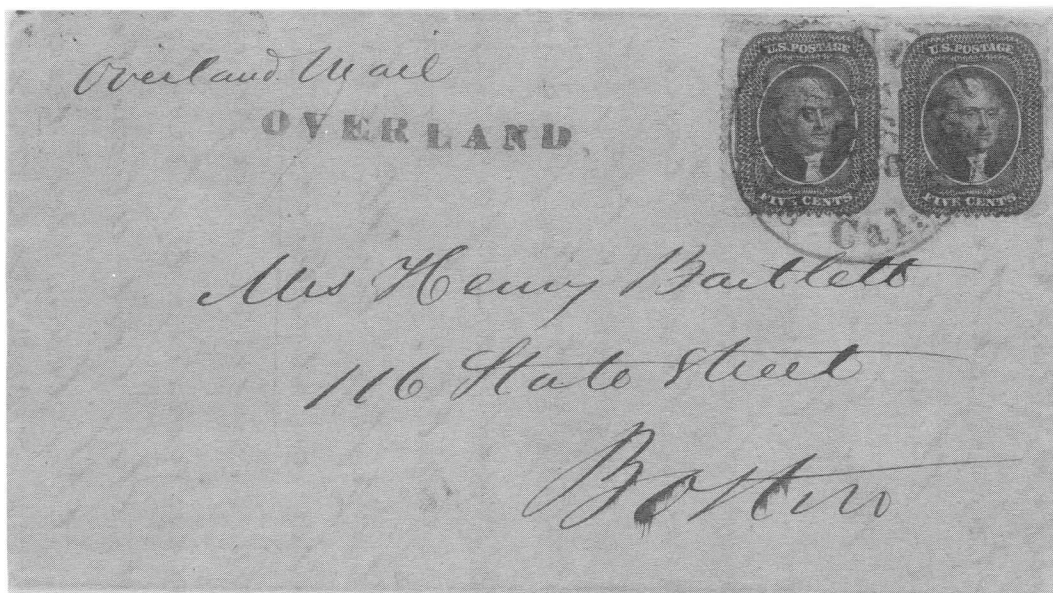 Overland Mail
OVERLAND.
U.S. POSTAGE U.S. POSTAGE
FIVE CENTS FIVE CENTS
Cal.
Mrs Henry Bartlett
116 State Street
Boston